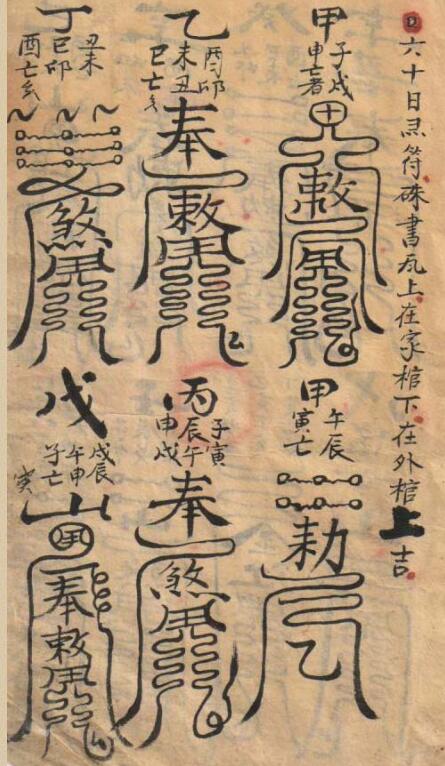 六十日符硃書瓦上在家棺下在外棺上吉
甲
子戌
申亡者
敕
乙
卯
未丑
巳亡
奉
敕
丁
丑未
巳卯
酉亡
煞
甲
午辰
寅亡
勅
丙
子寅
辰午
申戌
奉
煞
戊
戌辰
午申
子亡
寅
山
奉敕